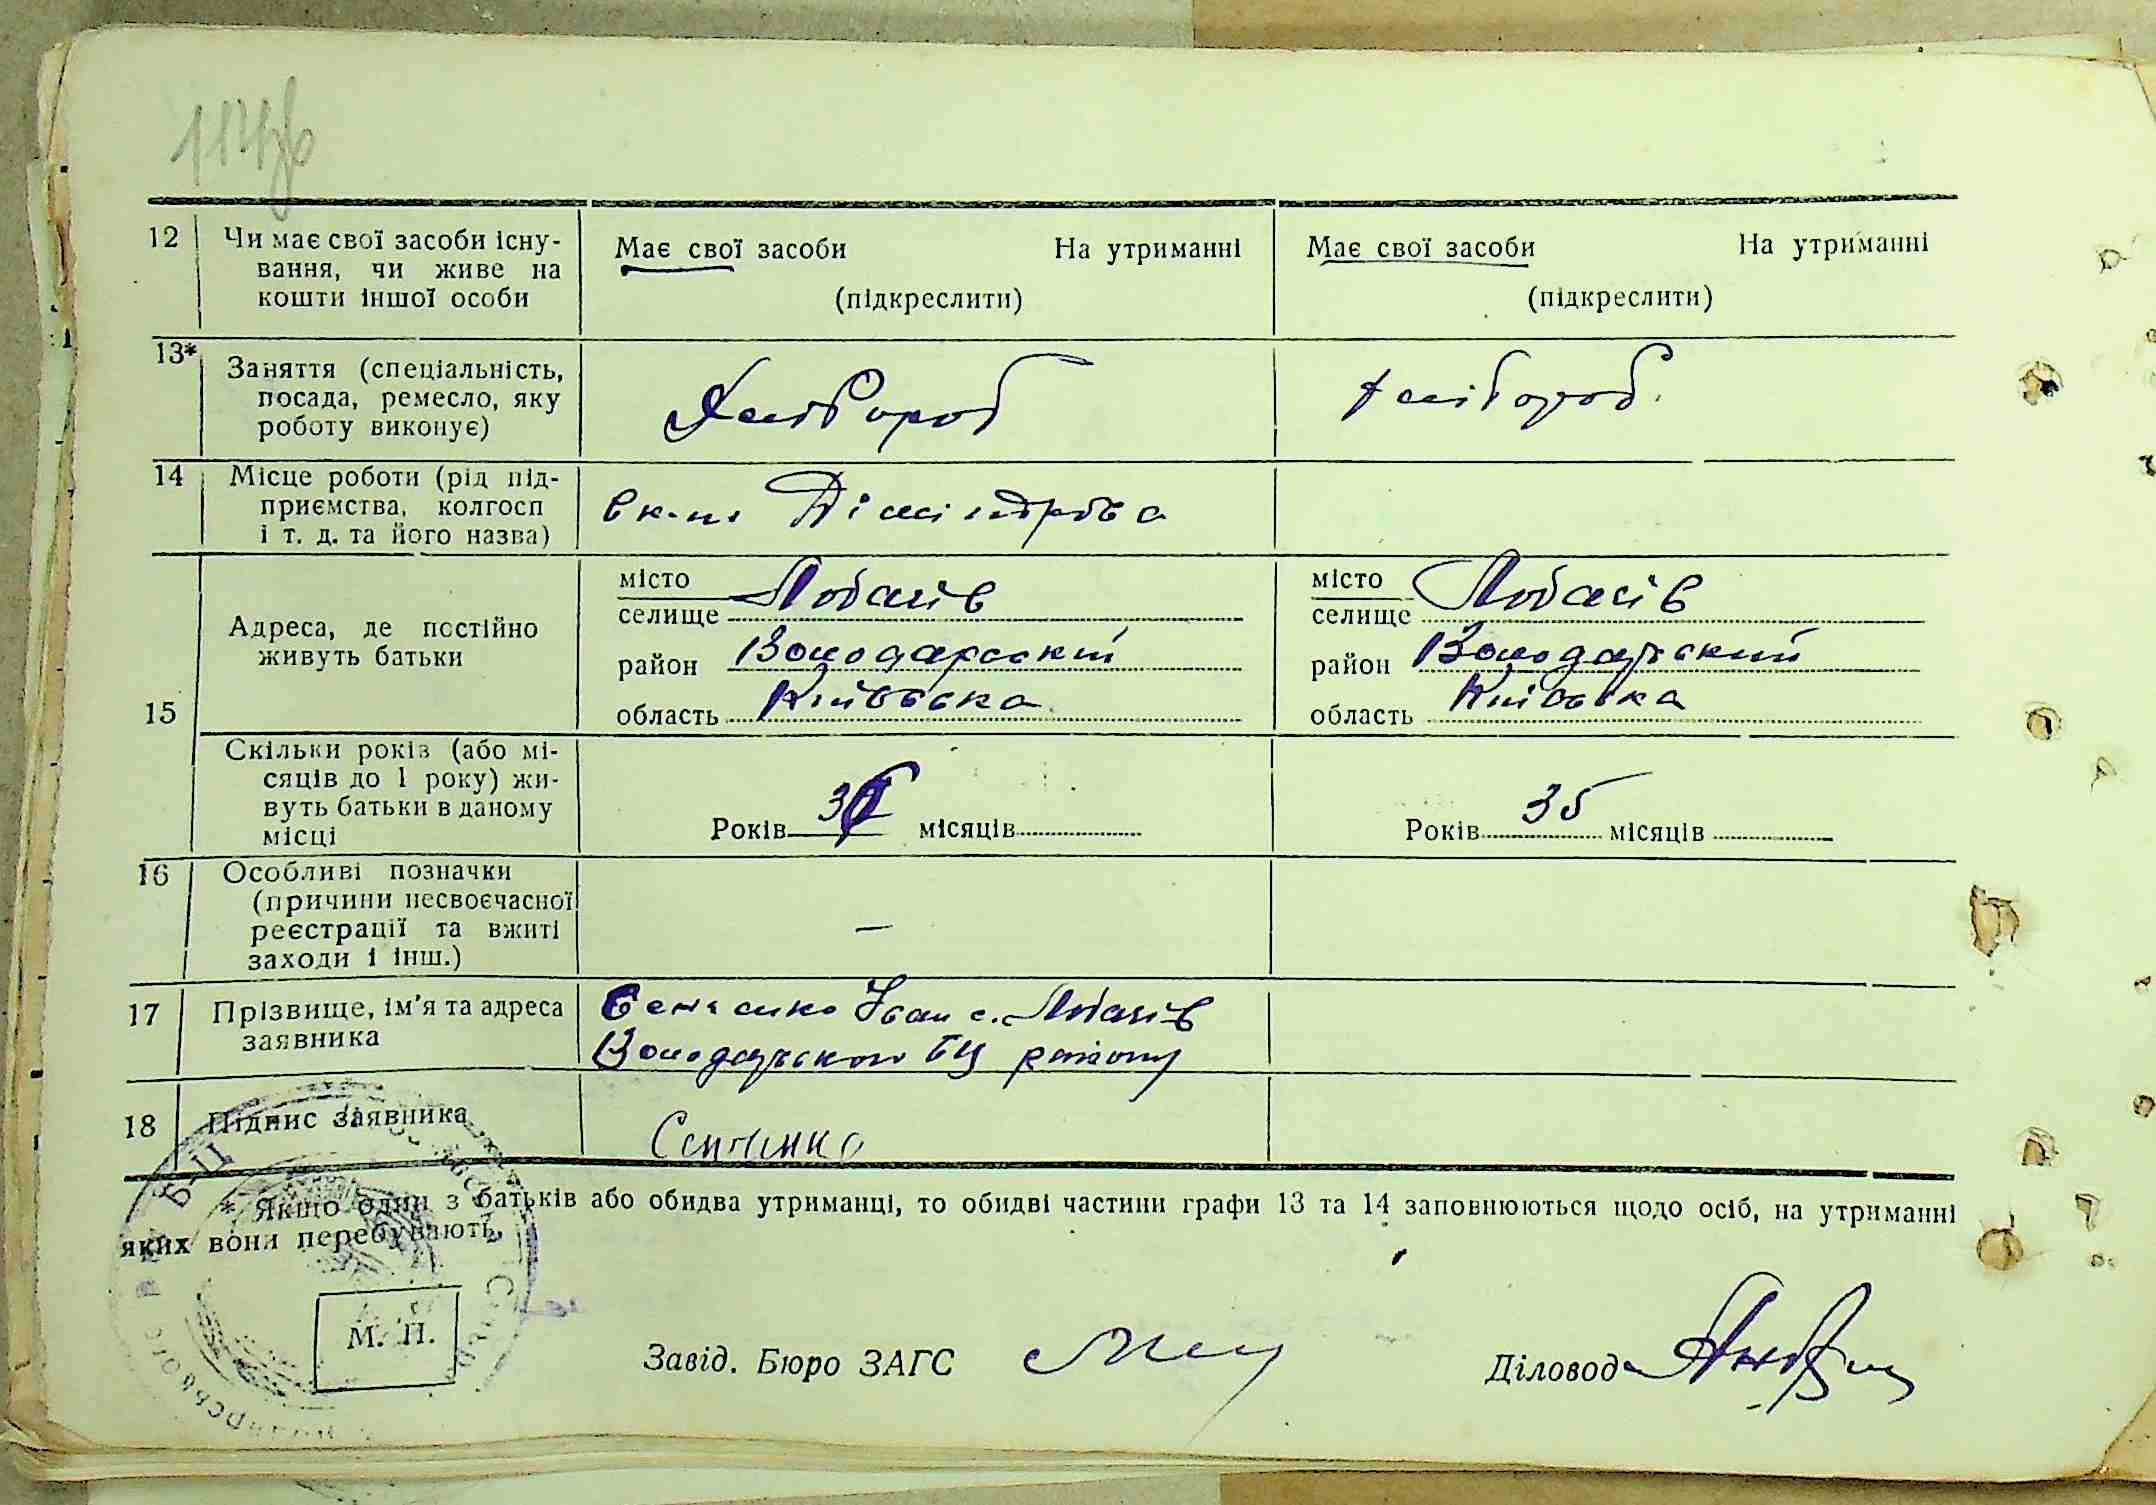 12 Чи має свої засоби існу-
вання, чи живе на
кошти іншої особи
Має свої засоби На утриманні
(підкреслити)
Має свої засоби На утриманні
(підкреслити)
13* Заняття (спеціальність,
посада, ремесло, яку
роботу виконує)
Хлібороб
хлібороб
14 Місце роботи (рід під-
приємства, колгосп
і т. д. та його назва)
Дімітрова
15 Адреса, де постійно
живуть батьки
місто
селище Лобачів
район Володарський
область Київська
місто
селище Лобачів
район Володарський
область Київська
Скільки років (або мі-
сяців до 1 року) жи-
вуть батьки в даному
місці
Років місяців
Років 35 місяців
16 Особливі позначки
(причини несвоєчасної
реєстрації та вжиті
заходи і інш.)
—
17 Прізвище, ім'я та адреса
заявника
Іван с. Лобачів
Володарського БЦ району
18 Підпис заявника
Сенченко
* Якщо один з батьків або обидва утриманці, то обидві частини графи 13 та 14 заповнюються щодо осіб, на утриманні
яких вони перебувають.
М. П.
Завід. Бюро ЗАГС
Діловод